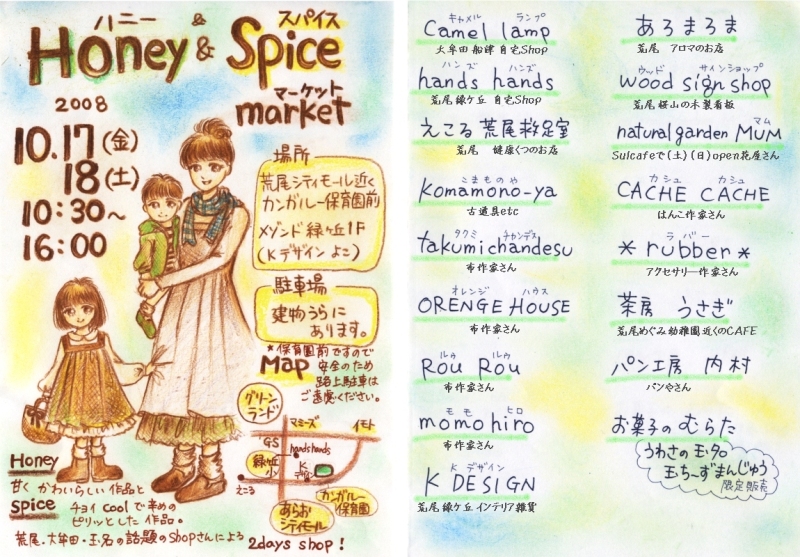 ハニー & スパイス
Honey & Spice
マーケット
market
2008
10.17(金)
18(土)
10:30~
16:00
場所
荒尾シティモール近く
カンガルー保育園前
メゾンド緑ヶ丘1F
(Kデザイン よこ)
駐車場
建物うらに
あります。
*保育園前ですので
安全のため
路上駐車は
ご遠慮ください。
Map
グリーン
ランド
マミーズ
イモト
GS
hands hands
緑ヶ丘
小
K
デザイン
えころ
カンガルー
保育園
あらお
シティモール
Honey
甘く かわいらしい作品と
Spice
チョイ coolで辛めの
ピリッとした作品。
荒尾.大牟田・玉名の話題のShopさんによる
2days shop!
キャメル ランプ
Camel lamp
大牟田 船津 自宅Shop
ハンズ ハンズ
hands hands
荒尾緑ケ丘 自宅Shop
えころ 荒尾救足室
荒尾 健康くつのお店
こまものや
Komamono-ya
古道具etc
タクミ チャンデス
takumichandesu
布作家さん
オレンジ ハウス
ORENGE HOUSE
布作家さん
ルゥ ルゥ
Rou Rou
布作家さん
モモ ヒロ
momohiro
布作家さん
K デザイン
K DESIGN
荒尾緑ケ丘 インテリア雑貨
あろまろま
荒尾 アロマのお店
ウッド サインショップ
wood sign shop
荒尾桜山の木製看板
マム
natural garden MUM
Sulcafeで(土)(日)open花屋さん
カシュ カシュ
CACHE CACHE
はんこ作家さん
ラバー
*rubber*
アクセサリー作家さん
茶房 うさぎ
荒尾めぐみ幼稚園近くのCAFE
パン工房 内村
パンやさん
お菓子の むらた
うわさの玉名
玉ち~ずまんじゅう
限定販売